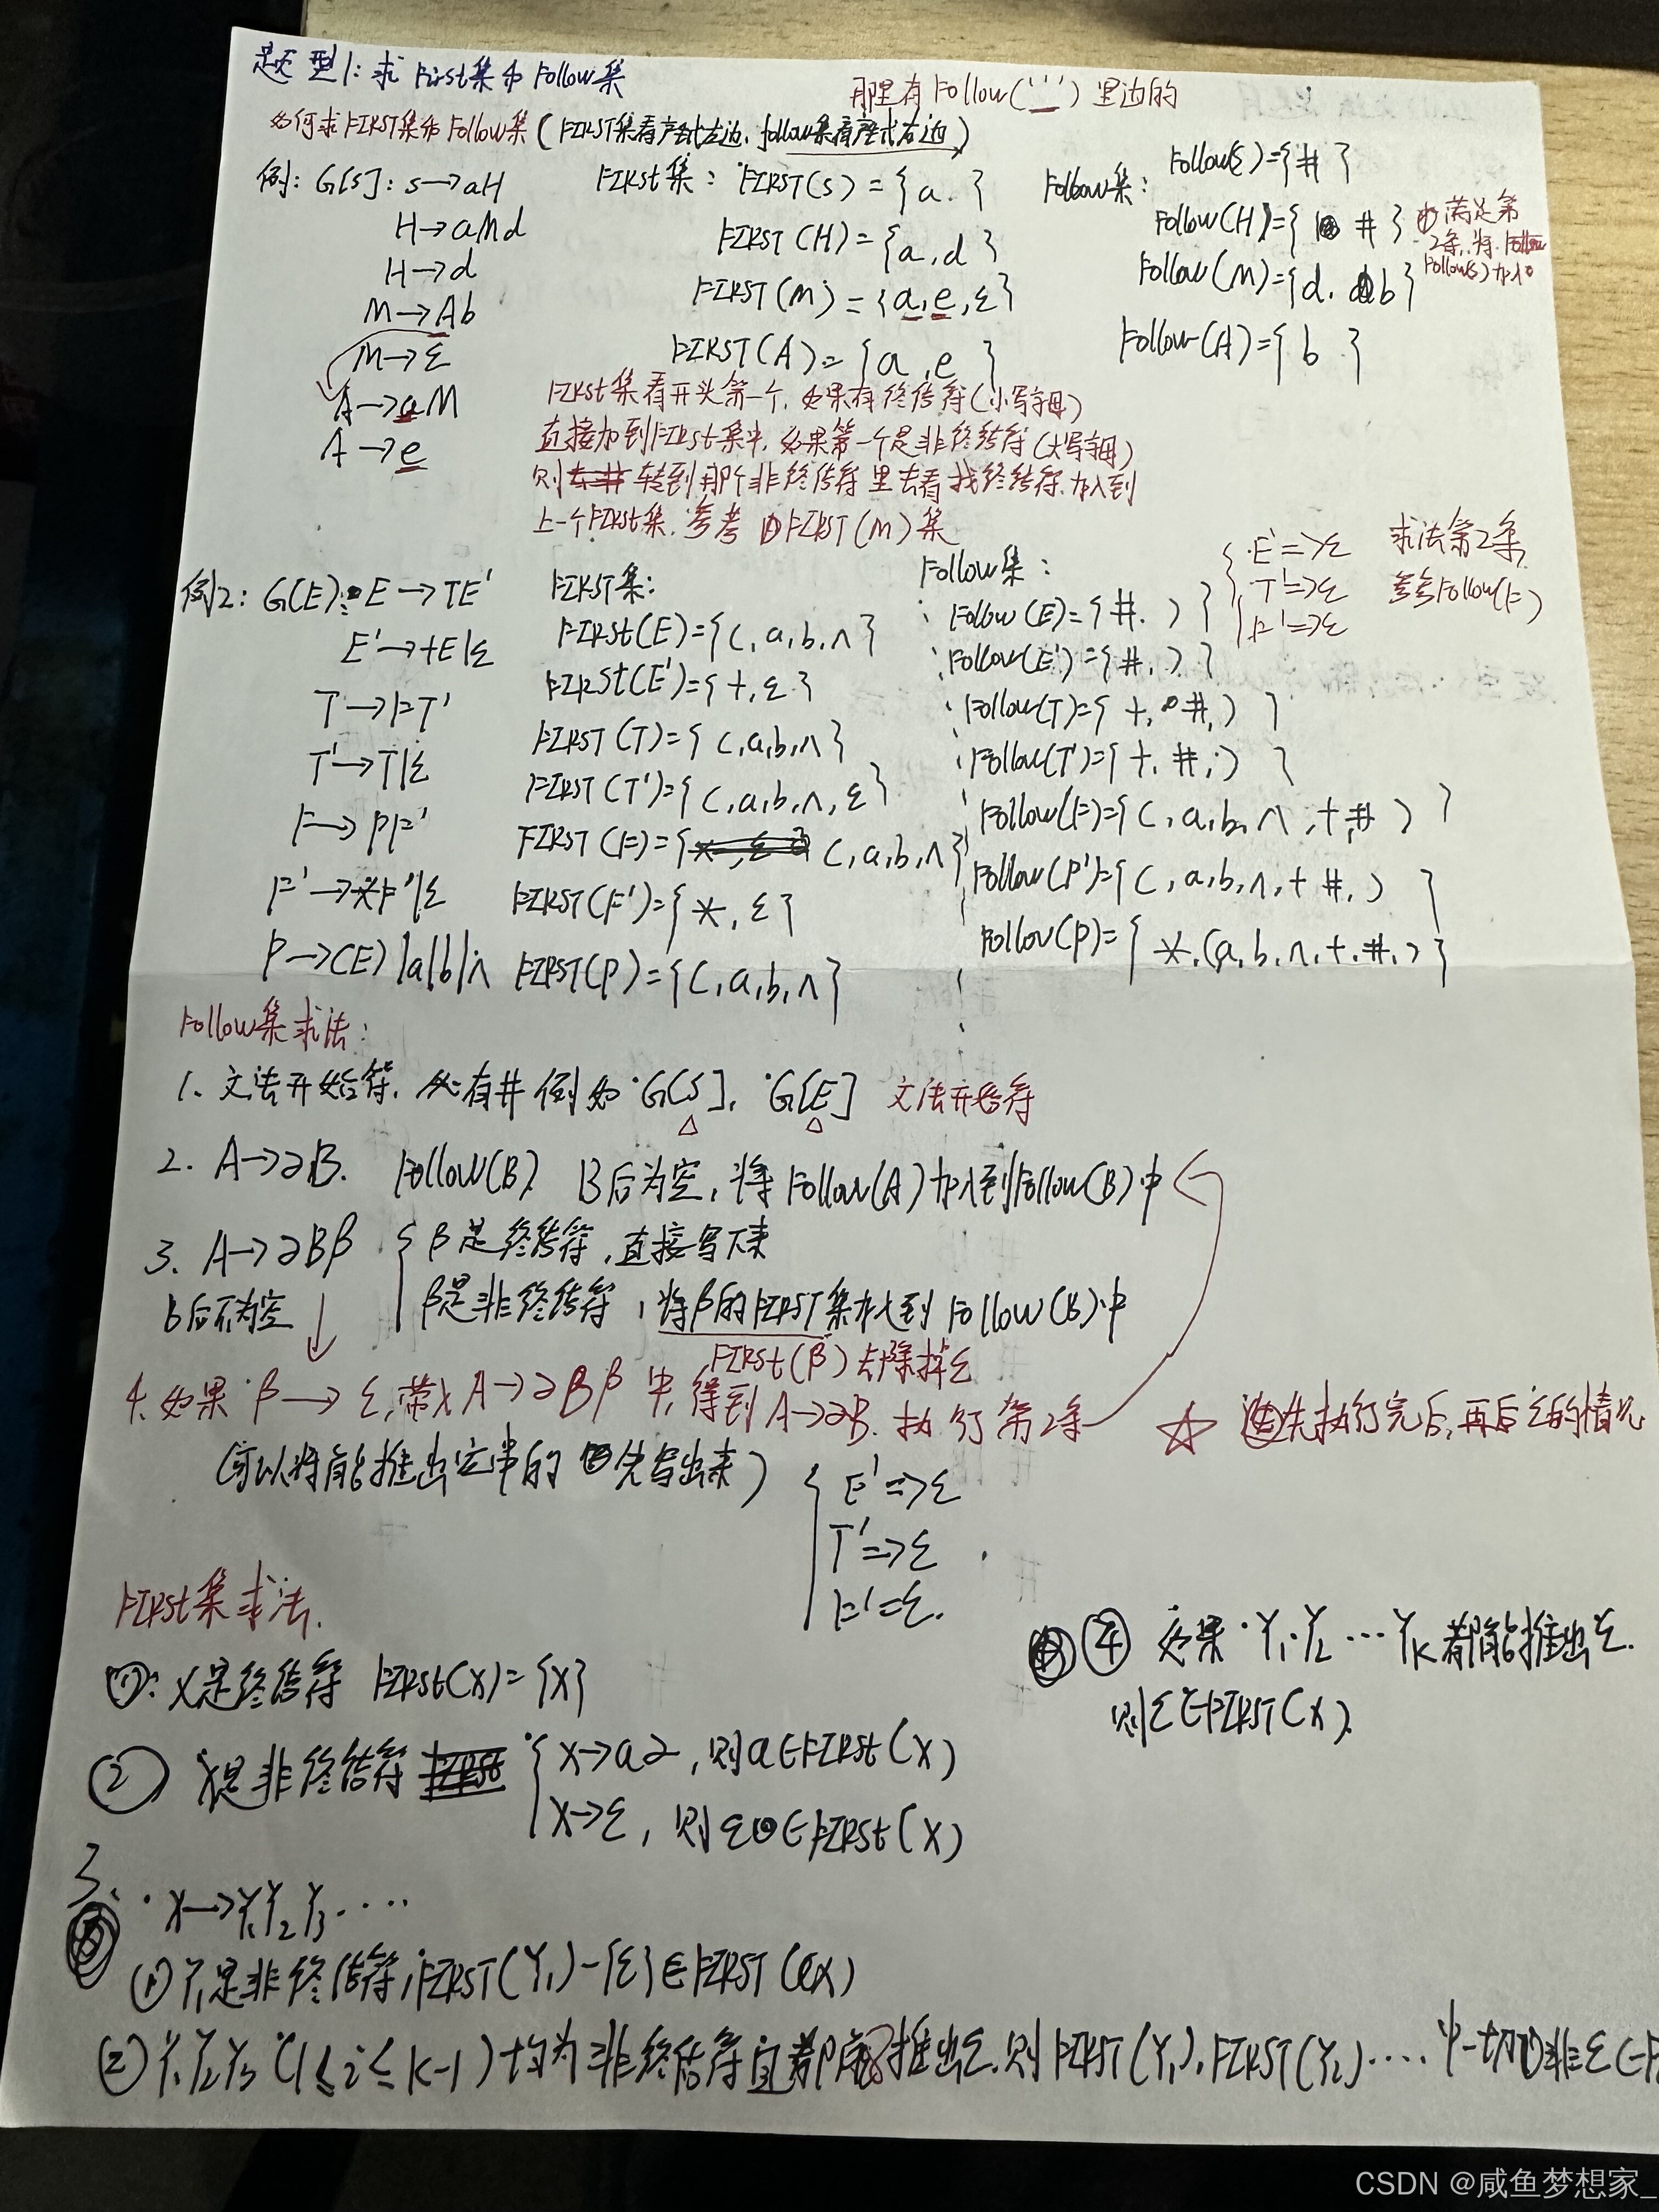 题型1:求First集和Follow集
那里有Follow(" ")里边的
如何求FIRST集和Follow集(FIRST集看产生式左边,follow集看产生式右边)
例:G[S]:S→aH
H→aMd
H→d
M→Ab
M→ε
A→aM
A→e
FIRST集:FIRST(S)={a.}
FIRST(H)={a,d}
FIRST(M)={a,e,ε}
FIRST(A)={a,e}
Follow集:
Follow(S)={#}
Follow(H)={#}
满足第
2条,将
Follow(S)加入
Follow(M)={d,b}
Follow(A)={b.}
FIRST集看开头第一个,如果有终结符(小写字母)
直接加到FIRST集中,如果第一个是非终结符(大写字母)
则转到那个非终结符里去看找终结符,加入到
上一个FIRST集.参考FIRST(M)集
例2:G(E):E→TE'
E'→+E|ε
T→FT'
T'→T|ε
F→PF'
F'→*F'|ε
P→(E)|a|b|∧
FIRST集:
FIRST(E)={(,a,b,∧}
FIRST(E')={+,ε}
FIRST(T)={(,a,b,∧}
FIRST(T')={(,a,b,∧,ε}
FIRST(F)={(,a,b,∧}
FIRST(F')={*,ε}
FIRST(P)={(,a,b,∧}
Follow集:
Follow(E)={#.)}
Follow(E')={#,)}
Follow(T)={+,#,)}
Follow(T')={+,#,)}
Follow(F)={(,a,b,∧,+,#)}
Follow(F')={(,a,b,∧,+#,)}
Follow(P)={*,(a,b,∧,+,#,)}
E'=>ε 求法第2条
T'=>ε 参考Follow(F)
F'=>ε
Follow集求法:
1、文法开始符,必有# 例如G[S],G[E] 文法开始符
2. A→∂B. Follow(B) B后为空,将Follow(A)加入到Follow(B)中
3、A→∂Bβ β是终结符,直接写下来
B后不为空 β是非终结符,将β的FIRST集加入到Follow(B)中
FIRST(β)去除掉ε
4.如果β→ε,带入A→∂Bβ中,得到A→∂B.执行第2条
☆先执行完后,再后之的情况
(可以将能推出空串的先写出来)
E'=>ε
T'=>ε
F'=ε.
FIRST集求法.
①:X是终结符 FIRST(X)={X}
② X是非终结符 X→a∂,则a∈FIRST(X)
X→ε,则ε∈FIRST(X)
3、X→Y₁Y₂Y₃....
①Y₁是非终结符,FIRST(Y₁)-{ε}∈FIRST(X)
②Y₁Y₂Y₃(1≤i≤k-1)均为非终结符且都能推出ε.则FIRST(Y₁),FIRST(Y₂)....中一切非ε∈F
④ 如果Y₁Y₂…Yₖ都能推出ε.
则ε∈FIRST(X).
CSDN @咸鱼梦想家_